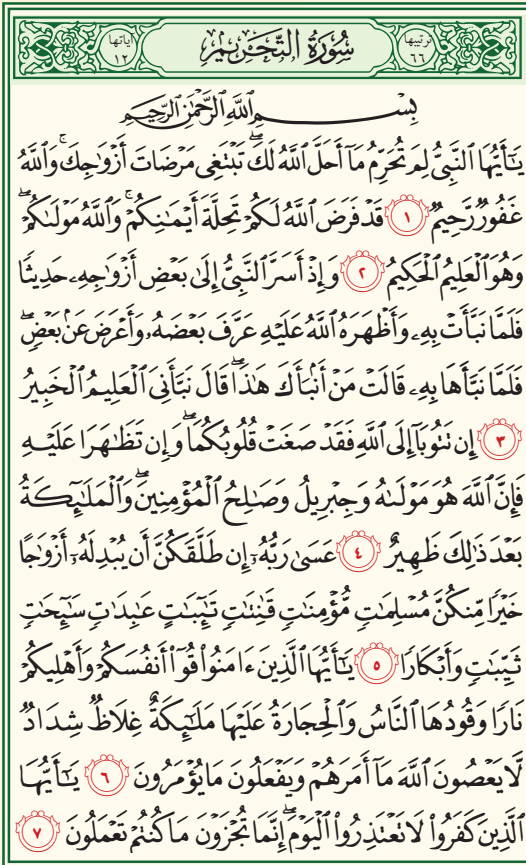 ترتيبها ٦٦ سُورَةُ التَّحْرِيمِ آياتها ١٢
بِسْمِ اللَّهِ الرَّحْمَٰنِ الرَّحِيمِ
يَٰٓأَيُّهَا ٱلنَّبِيُّ لِمَ تُحَرِّمُ مَآ أَحَلَّ ٱللَّهُ لَكَۖ تَبْتَغِى مَرْضَاتَ أَزْوَٰجِكَۚ وَٱللَّهُ
غَفُورٌ رَّحِيمٌ ١ قَدْ فَرَضَ ٱللَّهُ لَكُمْ تَحِلَّةَ أَيْمَٰنِكُمْۚ وَٱللَّهُ مَوْلَىٰكُمْۖ
وَهُوَ ٱلْعَلِيمُ ٱلْحَكِيمُ ٢ وَإِذْ أَسَرَّ ٱلنَّبِيُّ إِلَىٰ بَعْضِ أَزْوَٰجِهِۦ حَدِيثًا
فَلَمَّا نَبَّأَتْ بِهِۦ وَأَظْهَرَهُ ٱللَّهُ عَلَيْهِ عَرَّفَ بَعْضَهُۥ وَأَعْرَضَ عَنۢ بَعْضٍۖ
فَلَمَّا نَبَّأَهَا بِهِۦ قَالَتْ مَنْ أَنۢبَأَكَ هَٰذَاۖ قَالَ نَبَّأَنِىَ ٱلْعَلِيمُ ٱلْخَبِيرُ
٣ إِن تَتُوبَآ إِلَى ٱللَّهِ فَقَدْ صَغَتْ قُلُوبُكُمَاۖ وَإِن تَظَٰهَرَا عَلَيْهِ
فَإِنَّ ٱللَّهَ هُوَ مَوْلَىٰهُ وَجِبْرِيلُ وَصَٰلِحُ ٱلْمُؤْمِنِينَۖ وَٱلْمَلَٰٓئِكَةُ
بَعْدَ ذَٰلِكَ ظَهِيرٌ ٤ عَسَىٰ رَبُّهُۥٓ إِن طَلَّقَكُنَّ أَن يُبْدِلَهُۥٓ أَزْوَٰجًا
خَيْرًا مِّنكُنَّ مُسْلِمَٰتٍ مُّؤْمِنَٰتٍ قَٰنِتَٰتٍ تَٰٓئِبَٰتٍ عَٰبِدَٰتٍ سَٰٓئِحَٰتٍ
ثَيِّبَٰتٍ وَأَبْكَارًا ٥ يَٰٓأَيُّهَا ٱلَّذِينَ ءَامَنُوا۟ قُوٓا۟ أَنفُسَكُمْ وَأَهْلِيكُمْ
نَارًا وَقُودُهَا ٱلنَّاسُ وَٱلْحِجَارَةُ عَلَيْهَا مَلَٰٓئِكَةٌ غِلَاظٌ شِدَادٌ
لَّا يَعْصُونَ ٱللَّهَ مَآ أَمَرَهُمْ وَيَفْعَلُونَ مَا يُؤْمَرُونَ ٦ يَٰٓأَيُّهَا
ٱلَّذِينَ كَفَرُوا۟ لَا تَعْتَذِرُوا۟ ٱلْيَوْمَۖ إِنَّمَا تُجْزَوْنَ مَا كُنتُمْ تَعْمَلُونَ ٧